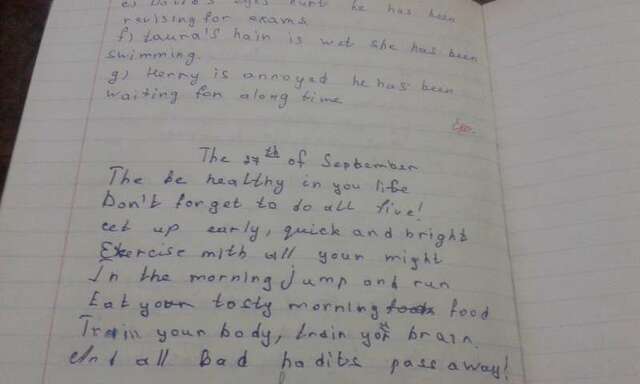 e) David's eyes hurt he has been
revising for exams.
f) Laura's hain is wet she has been
swimming.
g) Henry is annoyed he has been
waiting for along time
The 27th of September
The be healthy in you life
Don't forget to do all five!
Get up early, quick and bright
Exercise with all your might
In the morning jump and run
Eat your tasty morning food
Train your body, train your brain.
And all Bad habits pass away!